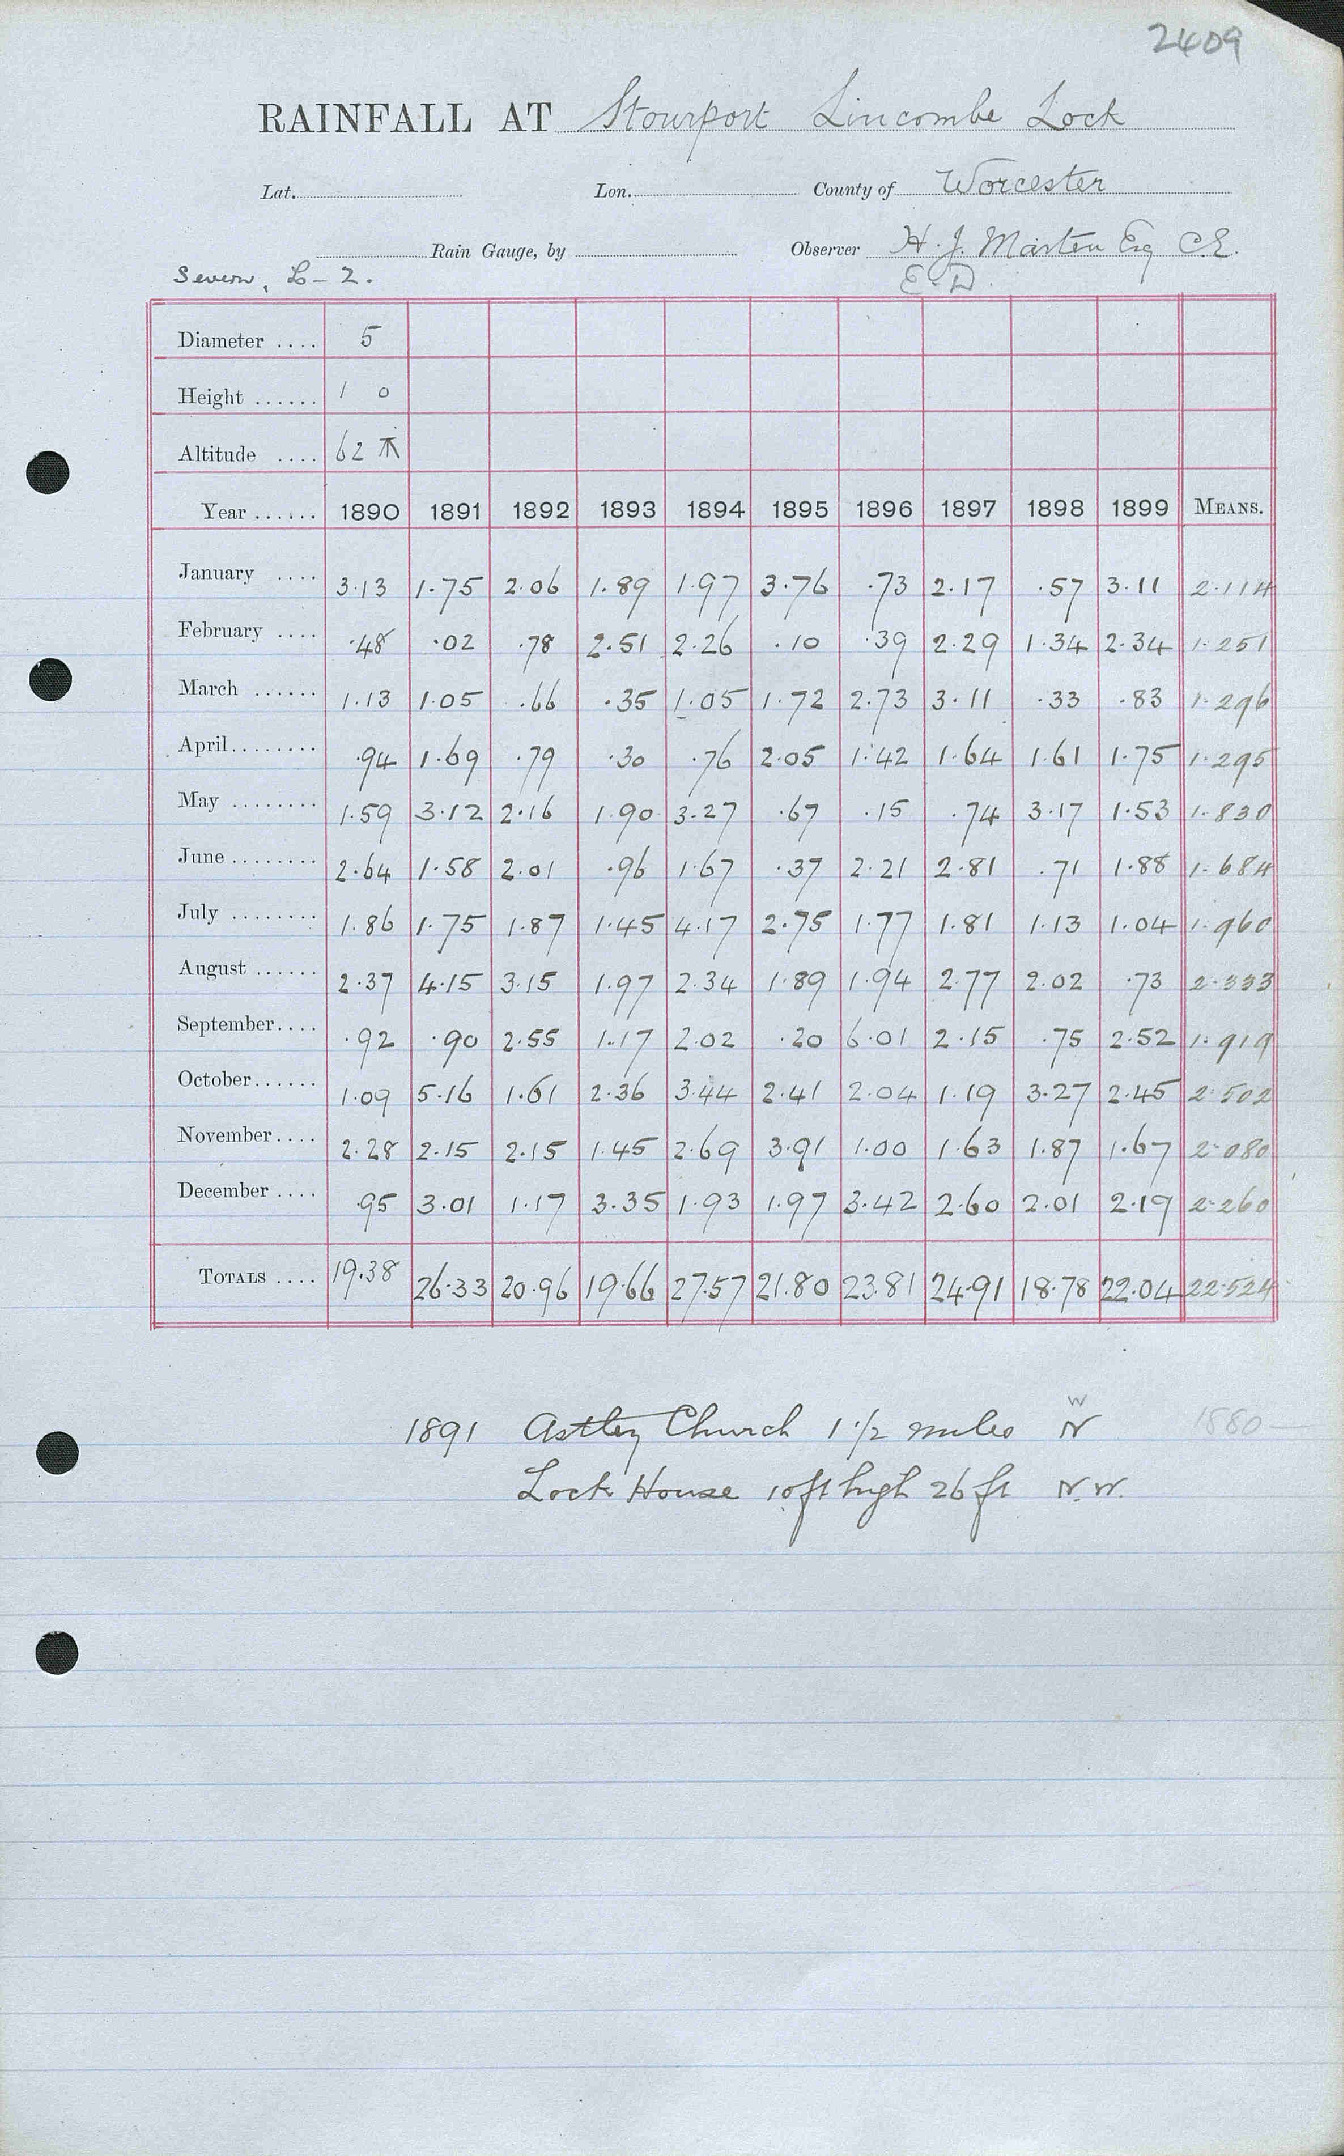 2409
RAINFALL AT Stourport Lincombe Lock
Lat. Lon. County of Worcester
Rain Gauge, by Observer H. J. Marten Esq C.E.
Severn, L-2. E.D.
Diameter .... 5
Height ...... 1 0
Altitude .... 62
Year ...... 1890 1891 1892 1893 1894 1895 1896 1897 1898 1899 MEANS.
January .... 3.13 1.75 2.06 1.89 1.97 3.76 .73 2.17 .57 3.11 2.114
February .... .48 .02 .78 2.51 2.26 .10 .39 2.29 1.34 2.34 1.251
March ...... 1.13 1.05 .66 .35 1.05 1.72 2.73 3.11 .33 .83 1.296
April........ .94 1.69 .79 .30 .76 2.05 1.42 1.64 1.61 1.75 1.295
May ........ 1.59 3.12 2.16 1.90 3.27 .67 .15 .74 3.17 1.53 1.830
June ........ 2.64 1.58 2.01 .96 1.67 .37 2.21 2.81 .71 1.88 1.684
July ........ 1.86 1.75 1.87 1.45 4.17 2.75 1.77 1.81 1.13 1.04 1.960
August ...... 2.37 4.15 3.15 1.97 2.34 1.89 1.94 2.77 2.02 .73 2.333
September.... .92 .90 2.55 1.17 2.02 .20 6.01 2.15 .75 2.52 1.919
October...... 1.09 5.16 1.61 2.36 3.44 2.41 2.04 1.19 3.27 2.45 2.502
November.... 2.28 2.15 2.15 1.45 2.69 3.91 1.00 1.63 1.87 1.67 2.080
December .... .95 3.01 1.17 3.35 1.93 1.97 3.42 2.60 2.01 2.19 2.260
TOTALS .... 19.38 26.33 20.96 19.66 27.57 21.80 23.81 24.91 18.78 22.04 22.524
1891 Astley Church 1 1/2 miles W N 1880
Lock House 10ft high 26 ft N.W.